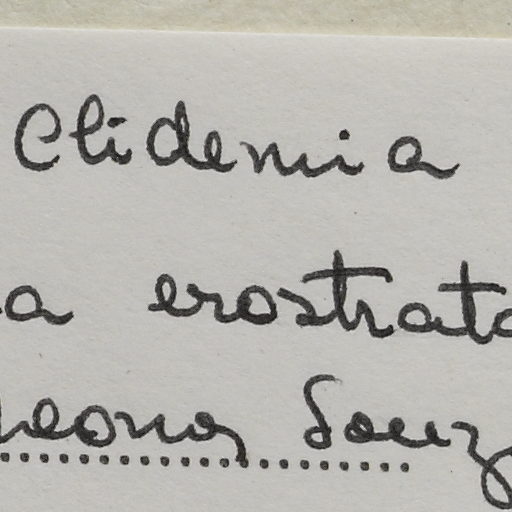 Clidemia
a erostrata
Leonor Souz